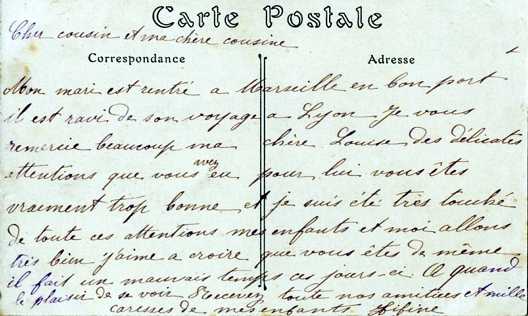 Carte Postale
Cher cousin et ma chère cousine
Correspondance Adresse
Mon mari est rentré a Marseille en bon port
il est ravi de son voyage a Lyon Je vous
remercie beaucoup ma chère Louise des délicates
attentions que vous avez eu pour lui vous êtes
vraiment trop bonne et je suis été très touché
de toute ces attentions mes enfants et moi allons
très bien j'aime a croire que vous êtes de même
il fait un mauvais temps ces jours-ci A quand
le plaisir de se voir Recevez toute nos amitiés et mille
caresses de mes enfants Fifine